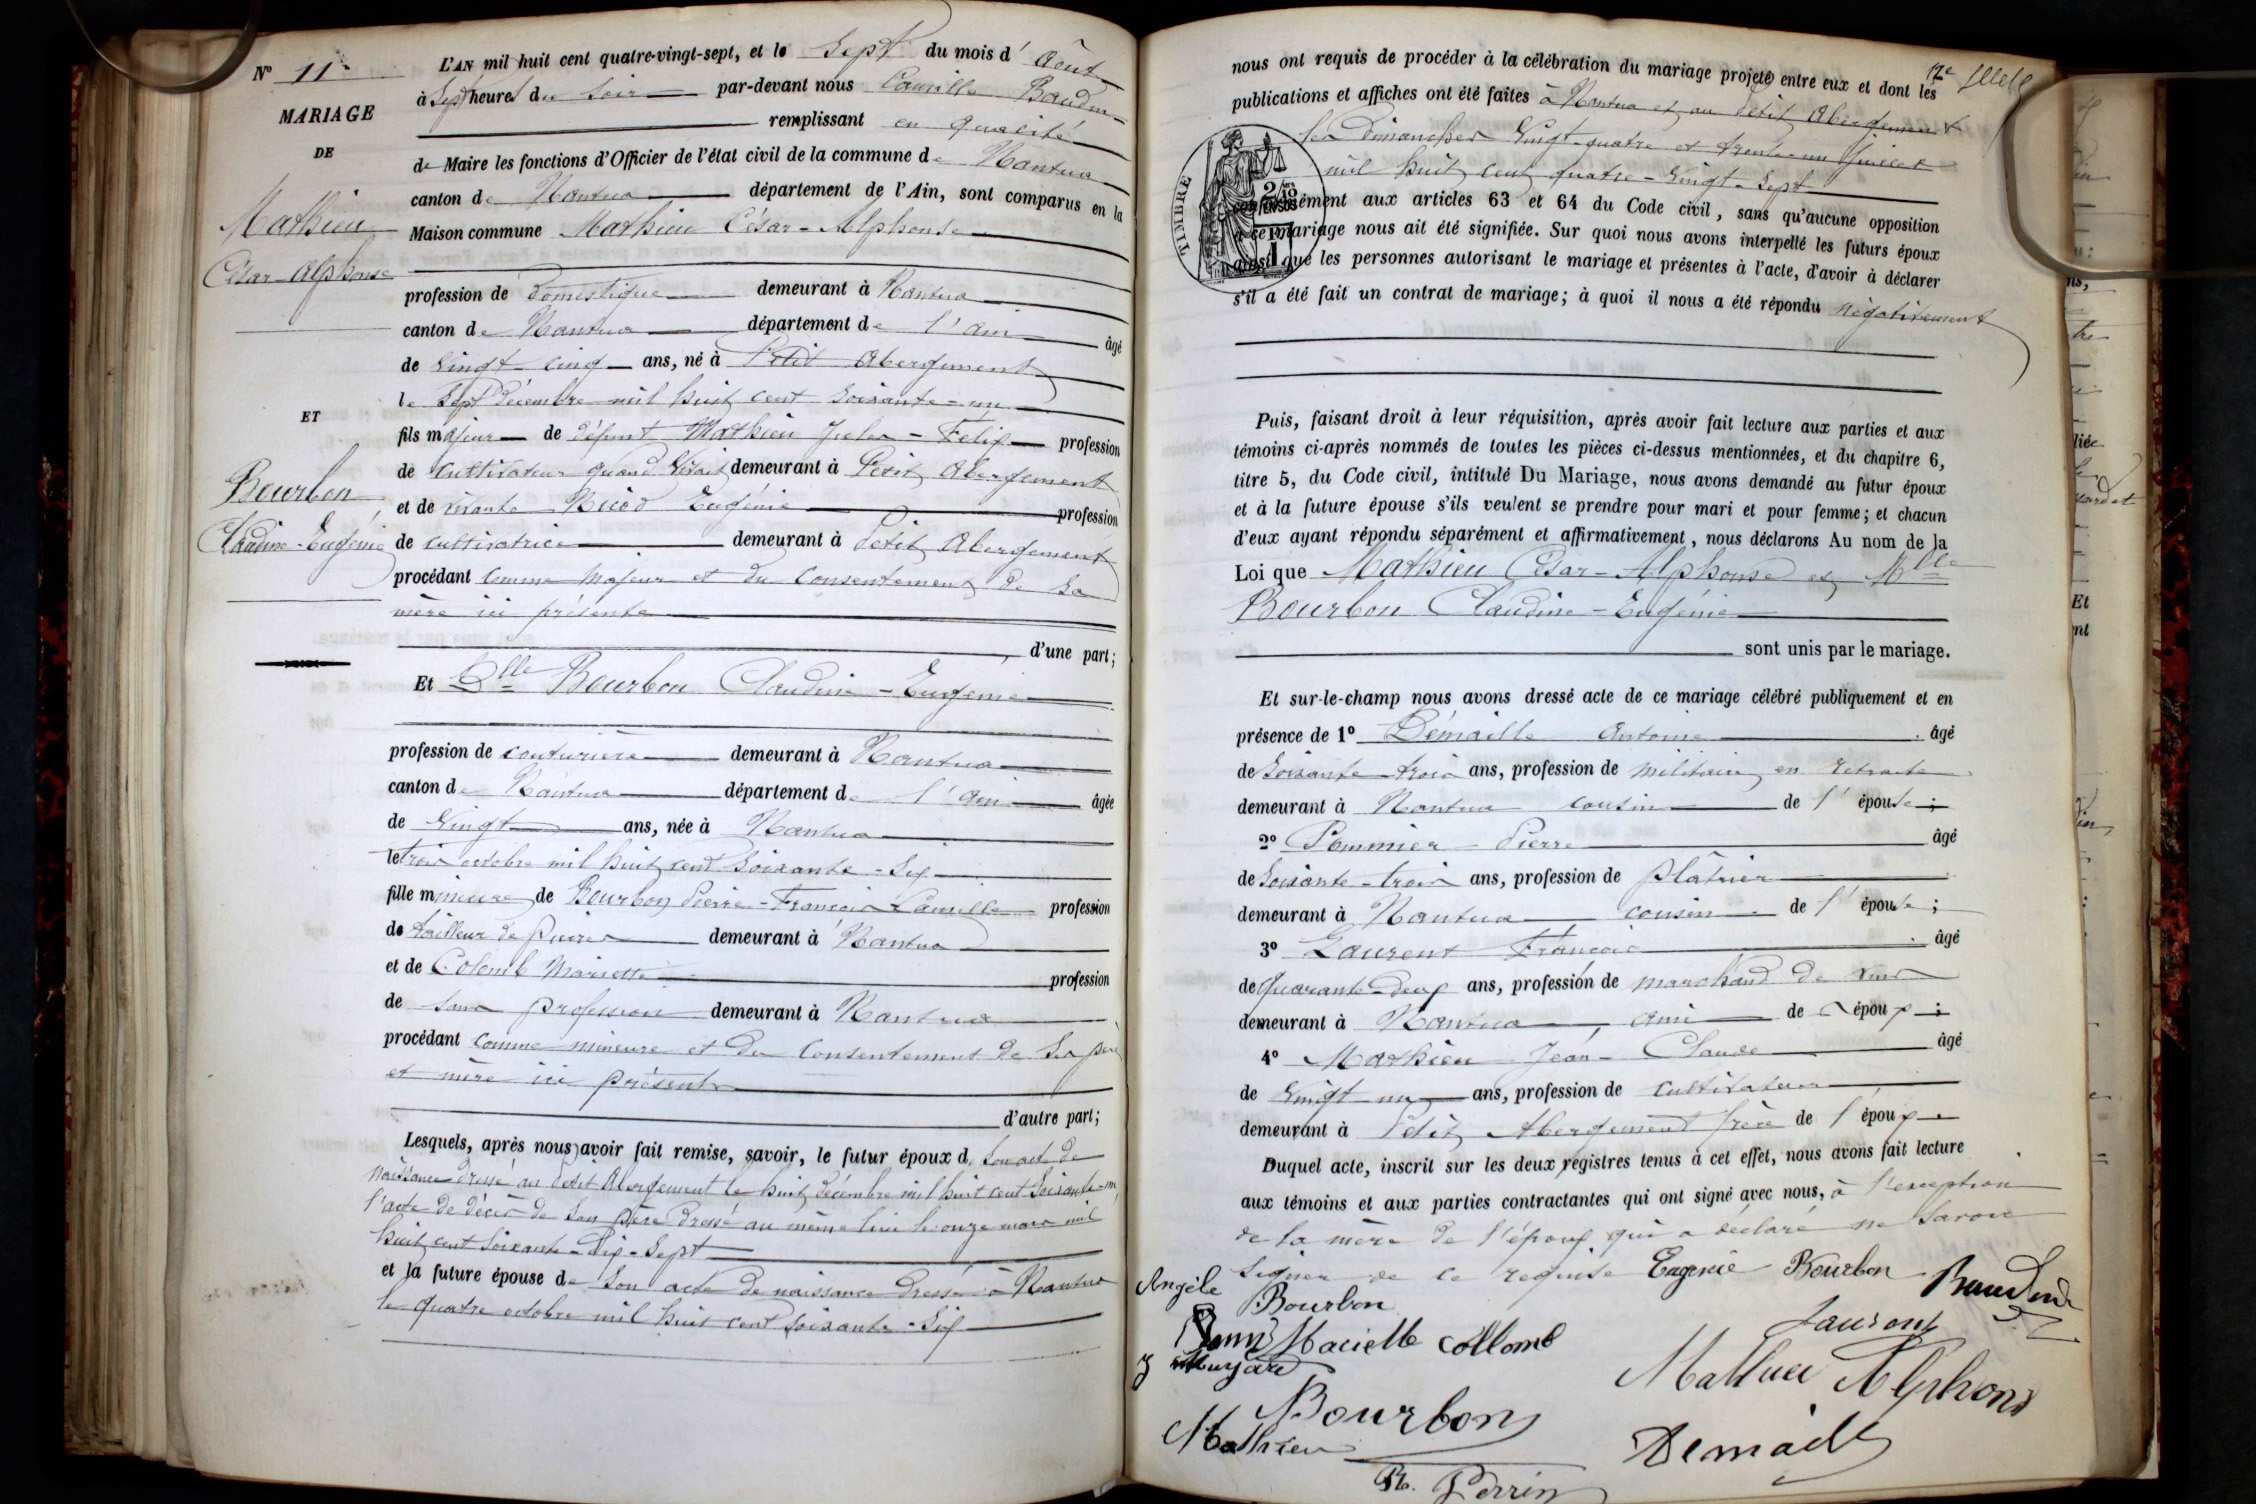 N° 11
MARIAGE
DE
Mathieu
César-Alphonse
ET
Bourbon
Claudine-Eugénie
L'AN mil huit cent quatre-vingt-sept, et le Sept du mois d'Août
à Sept heures du Soir par-devant nous Camille Baudin
remplissant en qualité
de Maire les fonctions d'Officier de l'état civil de la commune de Nantua
canton de Nantua département de l'Ain, sont comparus en la
Maison commune Mathieu César-Alphonse
profession de domestique demeurant à Nantua
canton de Nantua département de l'Ain âgé
de Vingt cinq ans, né à Petit Abergement
le Sept Décembre mil huit cent soixante-un
fils majeur de défunt Mathieu Jules-Félix profession
de cultivateur quand vivait demeurant à Petit Abergement
et de vivante Eugénie profession
de cultivatrice demeurant à Petit Abergement
procédant comme Majeur et du Consentement de sa
mère ici présente
d'une part;
Et Dlle Bourbon Claudine-Eugénie
profession de couturière demeurant à Nantua
canton de Nantua département de l'Ain âgée
de Vingt ans, née à Nantua
le trois octobre mil huit cent soixante-six
fille mineure de Bourbon Pierre-François-Camille profession
de tailleur de pierres demeurant à Nantua
et de Colomb Mariette profession
de sans profession demeurant à Nantua
procédant comme mineure et du Consentement de ses père
et mère ici présents
d'autre part;
Lesquels, après nous avoir fait remise, savoir, le futur époux d. son acte de
naissance dressé au Petit Abergement le huit décembre mil huit cent soixante-un
l'acte de décès de son père dressé au même lieu le onze mars mil
huit cent soixante-dix-sept
et la future épouse de son acte de naissance dressé à Nantua
le quatre octobre mil huit cent soixante-six
nous ont requis de procéder à la célébration du mariage projeté entre eux et dont les
publications et affiches ont été faites à Nantua et au Petit Abergement
les Dimanches Vingt-quatre et trente-un Juillet
mil huit cent quatre-Vingt-Sept
TIMBRE
conformément aux articles 63 et 64 du Code civil, sans qu'aucune opposition
à ce mariage nous ait été signifiée. Sur quoi nous avons interpellé les futurs époux
ainsi que les personnes autorisant le mariage et présentes à l'acte, d'avoir à déclarer
s'il a été fait un contrat de mariage; à quoi il nous a été répondu négativement
Puis, faisant droit à leur réquisition, après avoir fait lecture aux parties et aux
témoins ci-après nommés de toutes les pièces ci-dessus mentionnées, et du chapitre 6,
titre 5, du Code civil, intitulé Du Mariage, nous avons demandé au futur époux
et à la future épouse s'ils veulent se prendre pour mari et pour femme; et chacun
d'eux ayant répondu séparément et affirmativement, nous déclarons Au nom de la
Loi que Mathieu César-Alphonse et Mlle
Bourbon Claudine-Eugénie
sont unis par le mariage.
Et sur-le-champ nous avons dressé acte de ce mariage célébré publiquement et en
présence de 1° Démaille Antoine âgé
de Soixante-trois ans, profession de militaire en retraite
demeurant à Nantua cousin de l'épouse;
2° Pommier Pierre âgé
de Soixante-trois ans, profession de plâtrier
demeurant à Nantua cousin de l'épouse;
3° Laurent François âgé
de Quarante-deux ans, profession de marchand de vins
demeurant à Nantua, ami de l'époux;
4° Mathieu Jean-Claude âgé
de Vingt un ans, profession de cultivateur
demeurant à Petit Abergement frère de l'époux
Duquel acte, inscrit sur les deux registres tenus à cet effet, nous avons fait lecture
aux témoins et aux parties contractantes qui ont signé avec nous, à l'exception
de la mère de l'époux qui a déclaré ne savoir
signer de ce requise Eugenie Bourbon Baudin
Angèle Bourbon
Laurent
Mariette Collomb
Mathieu Alphons
Bourbon
Mathieu
Demaille
Perrin